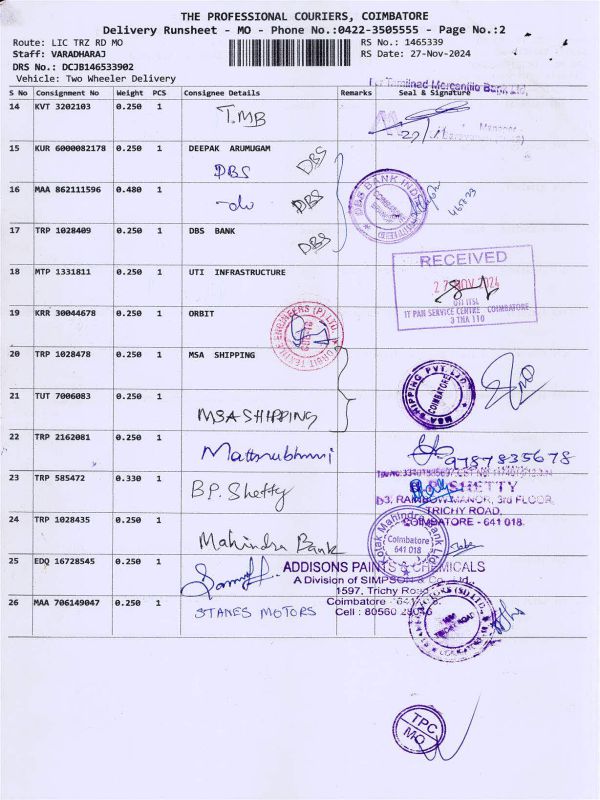 THE PROFESSIONAL COURIERS, COIMBATORE
Delivery Runsheet - MO - Phone No.:0422-3505555 - Page No.:2
Route: LIC TRZ RD MO
Staff: VARADHARAJ
DRS No.: DCJB146533902
Vehicle: Two Wheeler Delivery
RS No.: 1465339
RS Date: 27-Nov-2024
For Tamilnad Mercantile Bank Ltd,
S No Consignment No Weight PCS Consignee Details Remarks Seal & Signature
14 KVT 3202103 0.250 1 T.MB
Manager
15 KUR 6000082178 0.250 1 DEEPAK ARUMUGAM
DBS DBS
16 MAA 862111596 0.480 1 -do DBS
DBS BANK INDIA
17 TRP 1028409 0.250 1 DBS BANK
DBS
18 MTP 1331811 0.250 1 UTI INFRASTRUCTURE
RECEIVED
27 NOV 2024
UTI ITSL
IT PAN SERVICE CENTRE COIMBATORE
3 TNA 110
19 KRR 30044678 0.250 1 ORBIT
20 TRP 1028478 0.250 1 MSA SHIPPING
MSA SHIPPING PVT. LTD.
COIMBATORE
21 TUT 7006083 0.250 1
MSA SHIPPING
22 TRP 2162081 0.250 1 Mathrubhumi
9787835678
23 TRP 585472 0.330 1 B.P. Shetty
B.P. SHETTY
D3, RAINBOW MANOR, 3rd FLOOR,
TRICHY ROAD,
COIMBATORE - 641 018.
24 TRP 1028435 0.250 1 Mahindra Bank
Kotak Mahindra Bank Ltd.
Coimbatore
641 018
25 EDQ 16728545 0.250 1
ADDISONS PAINTS & CHEMICALS
A Division of SIMPSON & Co. Ltd.,
1597, Trichy Road,
Coimbatore
Cell : 80560
26 MAA 706149047 0.250 1 STANES MOTORS
TRICHY ROAD
TPC
MO